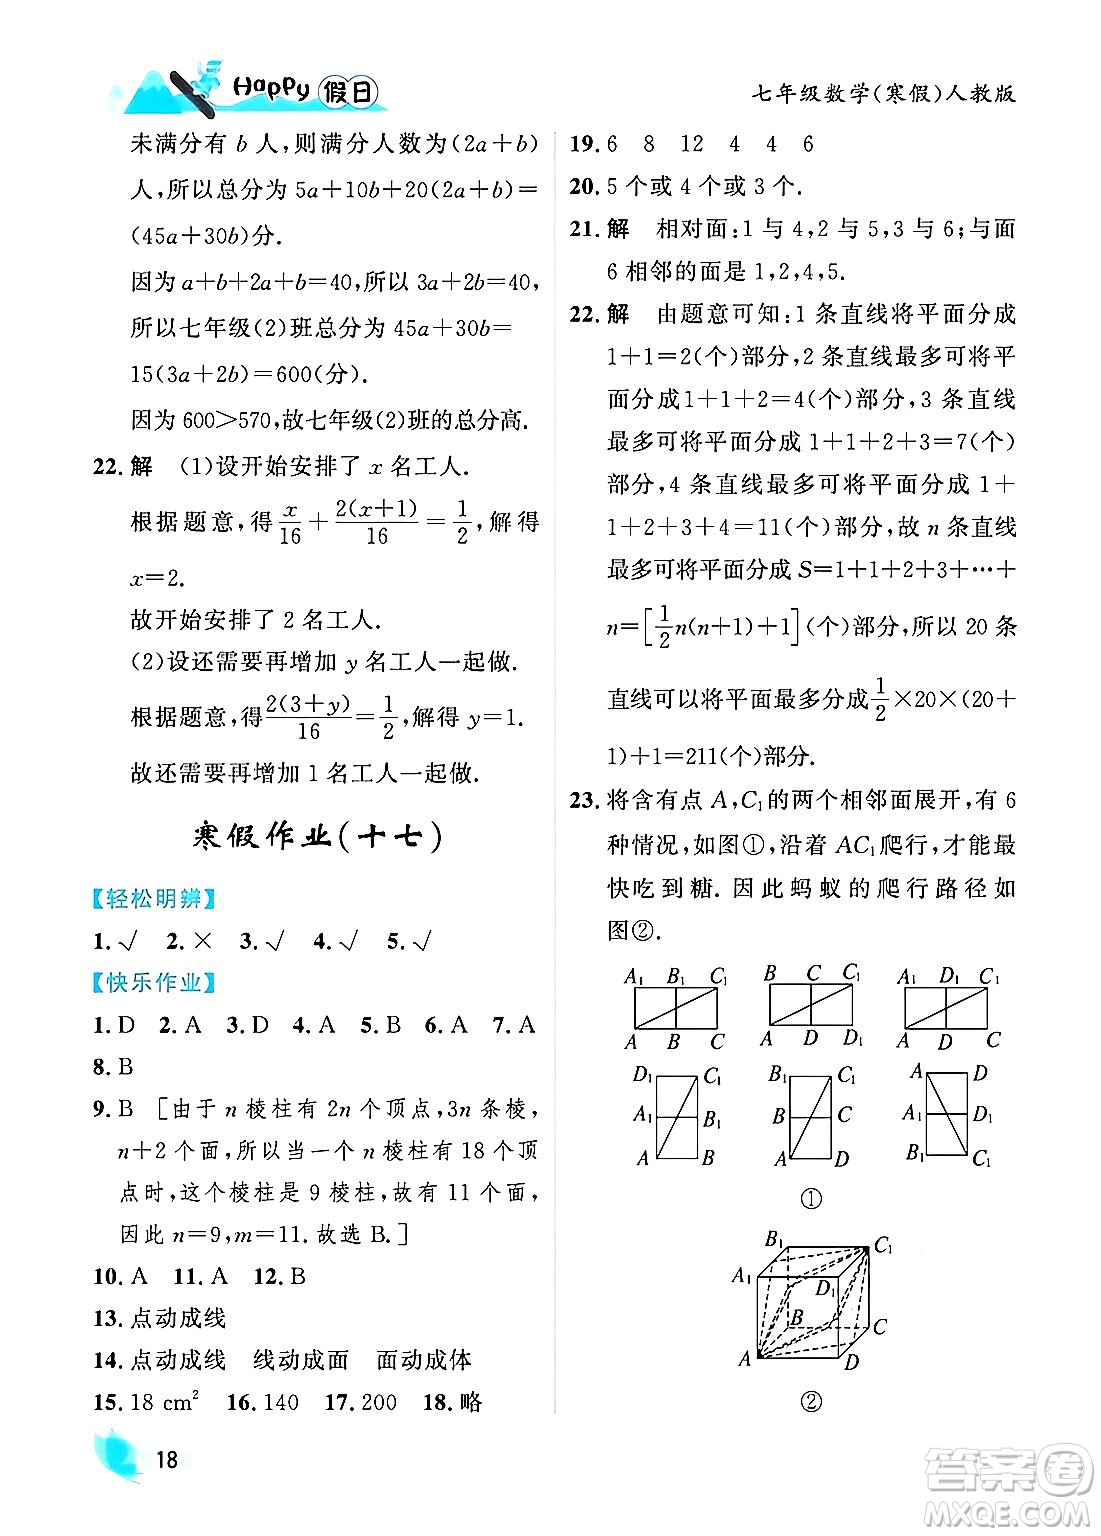 Happy 假日
七年级数学(寒假)人教版
未满分有 b 人,则满分人数为(2a+b)
人,所以总分为 5a+10b+20(2a+b)=
(45a+30b)分.
因为 a+b+2a+b+b=40,所以 3a+2b=40,
所以七年级(2)班总分为 45a+30b=
15(3a+2b)=600(分).
因为 600>570,故七年级(2)班的总分高.
22. 解 (1)设开始安排了 x 名工人.
根据题意,得 x/16 + 2(x+1)/16 = 1/2,解得
x=2.
故开始安排了 2 名工人.
(2)设还需要再增加 y 名工人一起做.
根据题意,得 2(3+y)/16 = 1/2,解得 y=1.
故还需要再增加 1 名工人一起做.
寒假作业(十七)
【轻松明辨】
1. √ 2. × 3. √ 4. √ 5. √
【快乐作业】
1. D 2. A 3. D 4. A 5. B 6. A 7. A
8. B
9. B [由于 n 棱柱有 2n 个顶点,3n 条棱,
n+2 个面,所以当一个 n 棱柱有 18 个顶
点时,这个棱柱是 9 棱柱,故有 11 个面,
因此 n=9,m=11.故选 B.]
10. A 11. A 12. B
13. 点动成线
14. 点动成线 线动成面 面动成体
15. 18 cm² 16. 140 17. 200 18. 略
18
19. 6 8 12 4 4 6
20. 5 个或 4 个或 3 个.
21. 解 相对面:1 与 4,2 与 5,3 与 6;与面
6 相邻的面是 1,2,4,5.
22. 解 由题意可知:1 条直线将平面分成
1+1=2(个)部分,2 条直线最多可将平
面分成1+1+2=4(个)部分,3 条直线
最多可将平面分成 1+1+2+3=7(个)
部分,4 条直线最多可将平面分成 1+
1+2+3+4=11(个)部分,故 n 条直线
最多可将平面分成 S=1+1+2+3+…+
n=[1/2 n(n+1)+1](个)部分,所以 20 条
直线可以将平面最多分成 1/2×20×(20+
1)+1=211(个)部分.
23. 将含有点 A,C₁的两个相邻面展开,有 6
种情况,如图①,沿着 AC₁爬行,才能最
快吃到糖.因此蚂蚁的爬行路径如
图②.
A₁ B₁ C₁ B C C₁ A₁ D₁ C₁
A B C A D D₁ A D C
D₁ C₁ B₁ C₁ A D
A₁ B₁ B C A₁ D₁
A B A D B₁ C₁
①
B₁ C₁
A₁ D₁
B C
A D
②
答案圈
MXQE.COM